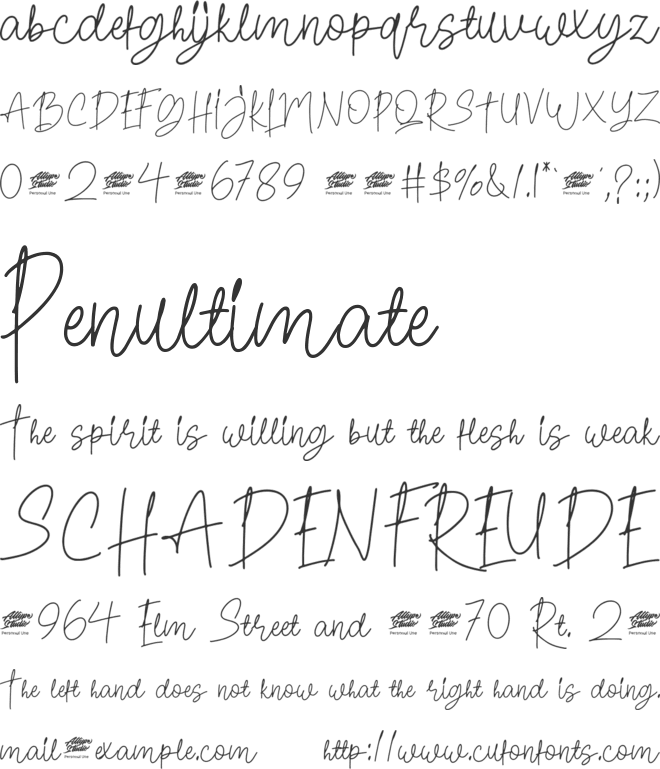 abcdefghijklmnopqrstuvwxyz
ABCDEFGHIJKLMNOPQRSTUVWXYZ
0 Allyn Studio Personal Use 2 Allyn Studio Personal Use 4 Allyn Studio Personal Use 6789 Allyn Studio Personal Use Allyn Studio Personal Use #$%&/.|*` Allyn Studio Personal Use ',?:;)
Penultimate
The spirit is willing but the flesh is weak
SCHADENFREUDE
Allyn Studio Personal Use 964 Elm Street and Allyn Studio Personal Use Allyn Studio Personal Use 70 Rt. 2 Allyn Studio Personal Use
The left hand does not know what the right hand is doing.
mail Allyn Studio Personal Use example.com http://www.cufonfonts.com